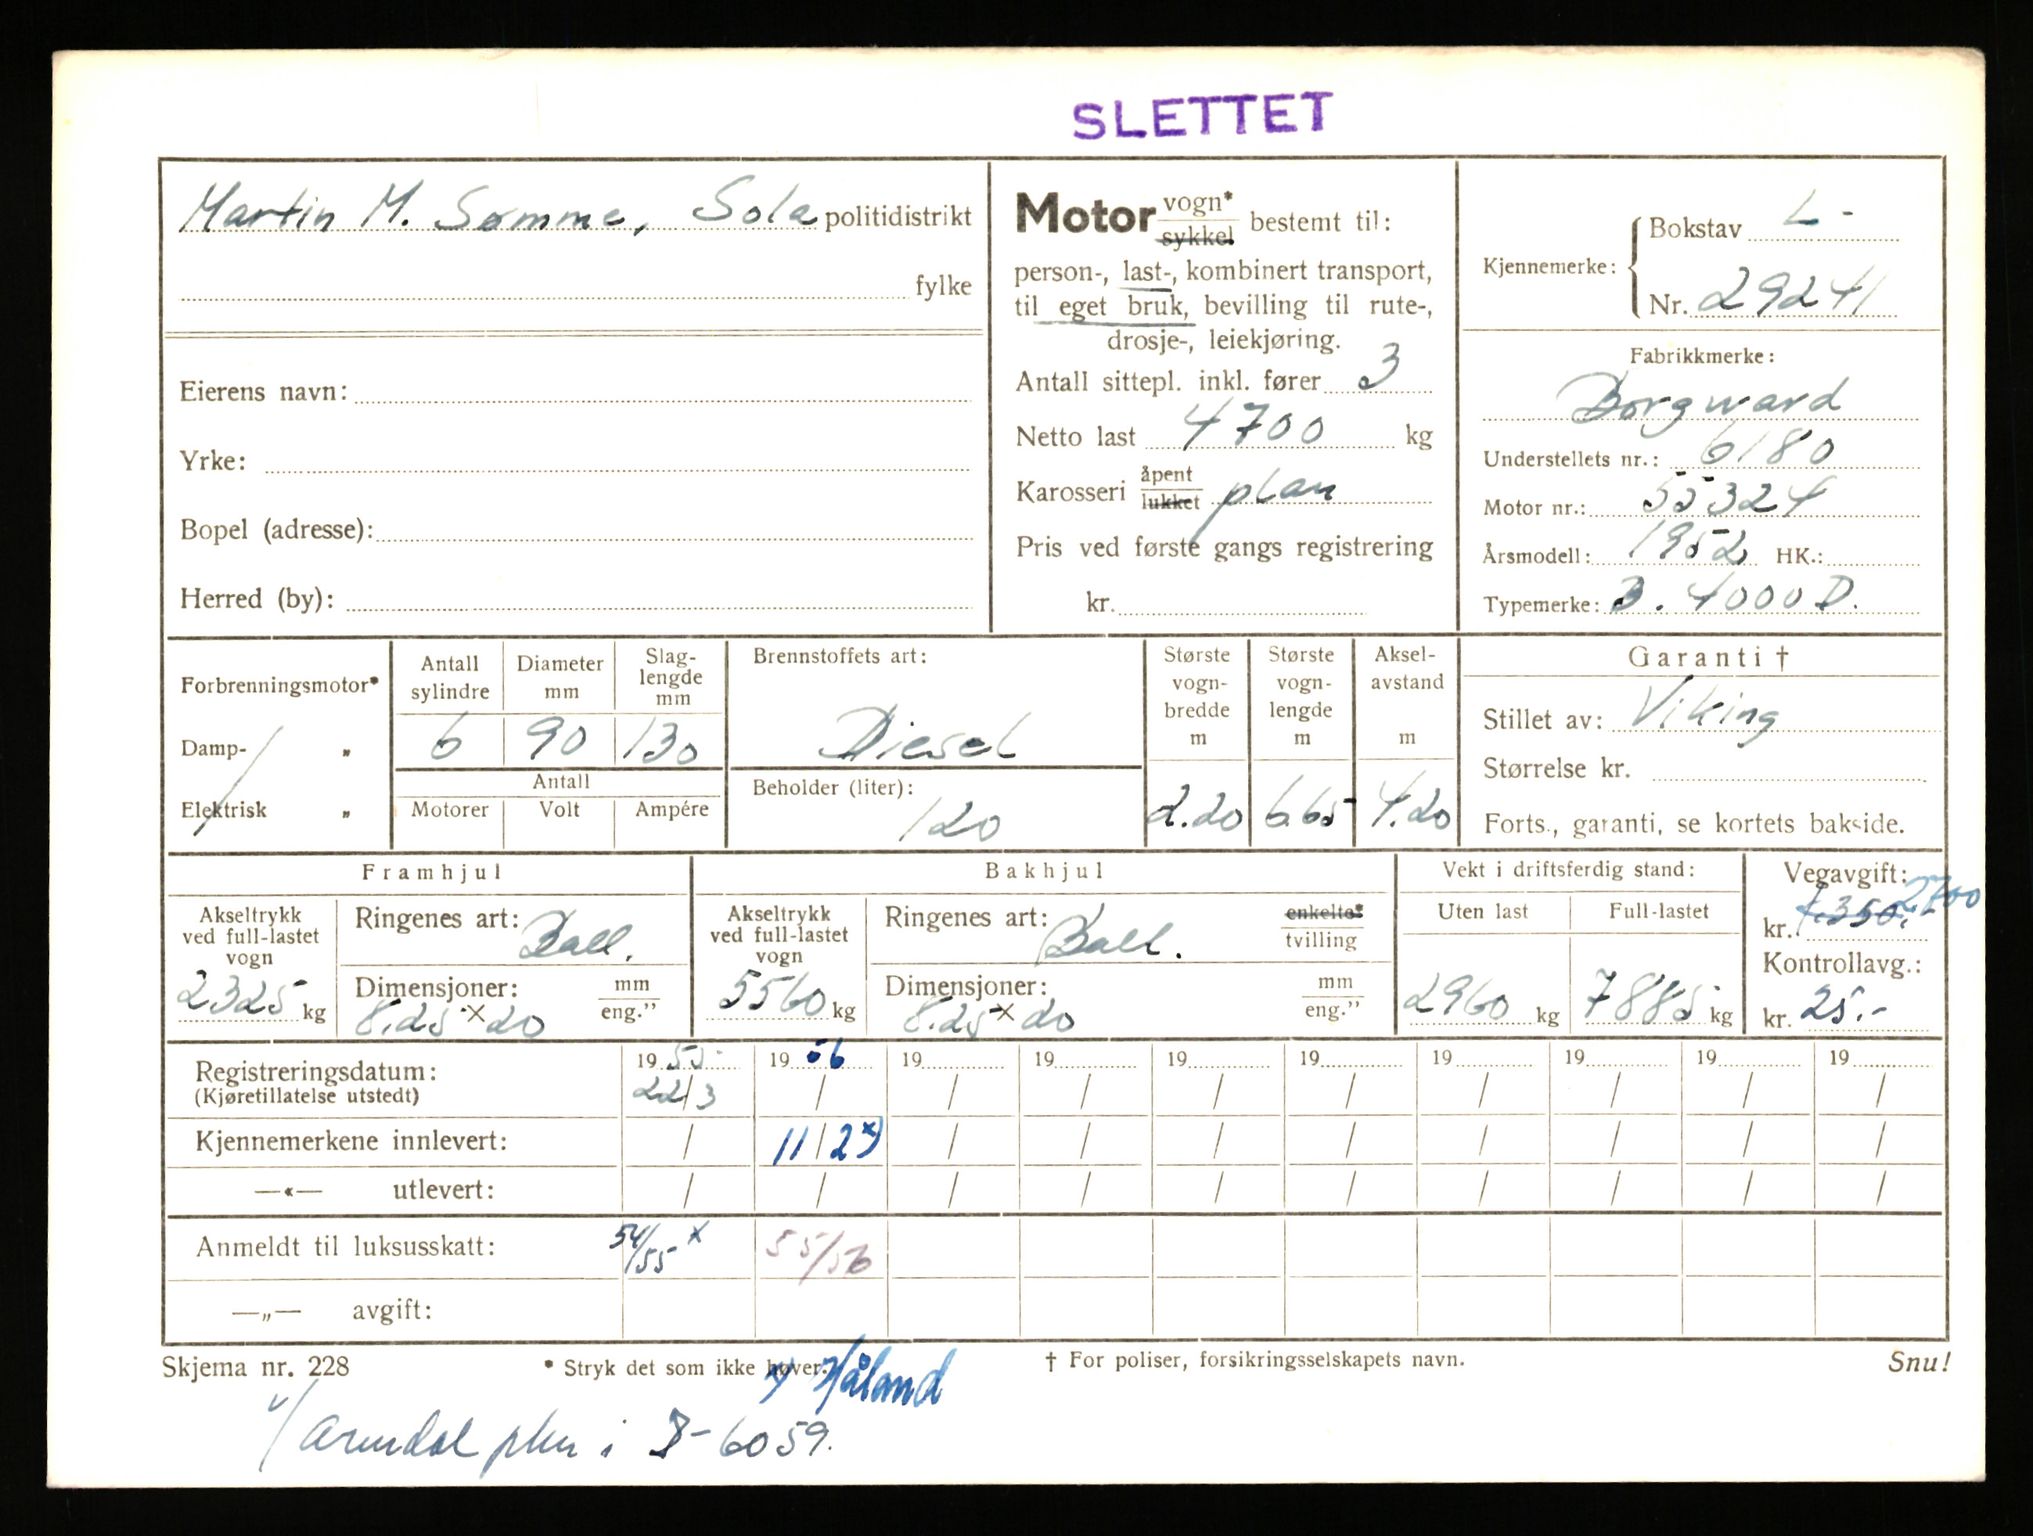 SLETTET
Martin M. Sømme, Sola politidistrikt
fylke
Eierens navn:
Yrke:
Bopel (adresse):
Herred (by):
Motor vogn* sykkel bestemt til:
person-, last-, kombinert transport,
til eget bruk, bevilling til rute-,
drosje-, leiekjøring.
Antall sittepl. inkl. fører 3
Netto last 4700 kg
Karosseri åpent lukket plan
Pris ved første gangs registrering
kr.
Kjennemerke: Bokstav L -
Nr. 29241
Fabrikkmerke:
Borgward
Understellets nr.: 6180
Motor nr.: 55324
Årsmodell: 1952 HK.:
Typemerke: B. 4000 D.
Forbrenningsmotor*
Damp- „
Elektrisk „
Antall sylindre
6
Diameter mm
90
Slag-lengde mm
130
Antall
Motorer Volt Ampére
Brennstoffets art:
Diesel
Beholder (liter):
120
Største vogn-bredde m
2.20
Største vogn-lengde m
6.65
Aksel-avstand m
4.20
Garanti †
Stillet av: Viking
Størrelse kr.
Forts., garanti, se kortets bakside.
Framhjul
Akseltrykk ved full-lastet vogn
2325 kg
Ringenes art: Ball.
Dimensjoner: mm eng.”
8.25 x 20
Bakhjul
Akseltrykk ved full-lastet vogn
5560 kg
Ringenes art: Ball. enkelte* tvilling
Dimensjoner: mm eng.”
8.25 x 20
Vekt i driftsferdig stand:
Uten last Full-lastet
2960 kg 7885 kg
Vegavgift: 2700
kr. 1.350.
Kontrollavg.:
kr. 25.-
19 55 19 56 19 19 19 19 19 19 19 19
Registreringsdatum: 22/3 / / / / / / / / /
(Kjøretillatelse utstedt)
Kjennemerkene innlevert: / 11/2 x) / / / / / / / /
—«— utlevert: / / / / / / / / / /
Anmeldt til luksusskatt: 54/55 x 55/56
—„— avgift:
Skjema nr. 228 * Stryk det som ikke høver. † For poliser, forsikringsselskapets navn. Snu!
x) Håland
v/ Arendal pkm i I-6059.